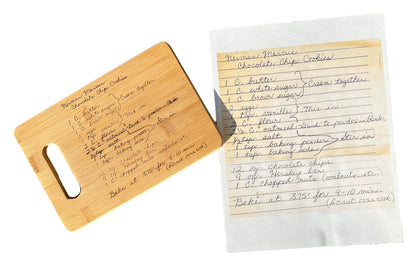 Neiman Marcus
Chocolate Chip Cookies
1 C. butter
1 C. white sugar
1 C. brown sugar
Cream together
2 eggs
1 tsp. vanilla
Mix in
2 C. flour
2½ C. oatmeal
½ tsp. salt
1 tsp. baking powder
1 tsp. baking soda
Stir in
12 oz chocolate chips
1 C. chopped nuts
Bake at 375° for 9-10 min.
(Do not over cook)
Neiman Marcus
Chocolate Chip Cookies
1 C. butter
1 C. white sugar
1 C. brown sugar
Cream together
2 eggs
1 tsp. vanilla
Mix in
2 C. flour
2½ C. oatmeal - Grind to powder in blender
½ tsp. salt
1 tsp. baking powder
1 tsp. baking soda
Stir in
12 oz. chocolate chips
9 oz. Hershey bar
1 C. chopped nuts (walnuts, etc)
Bake at 375° for 9-10 min.
(Do not over cook)